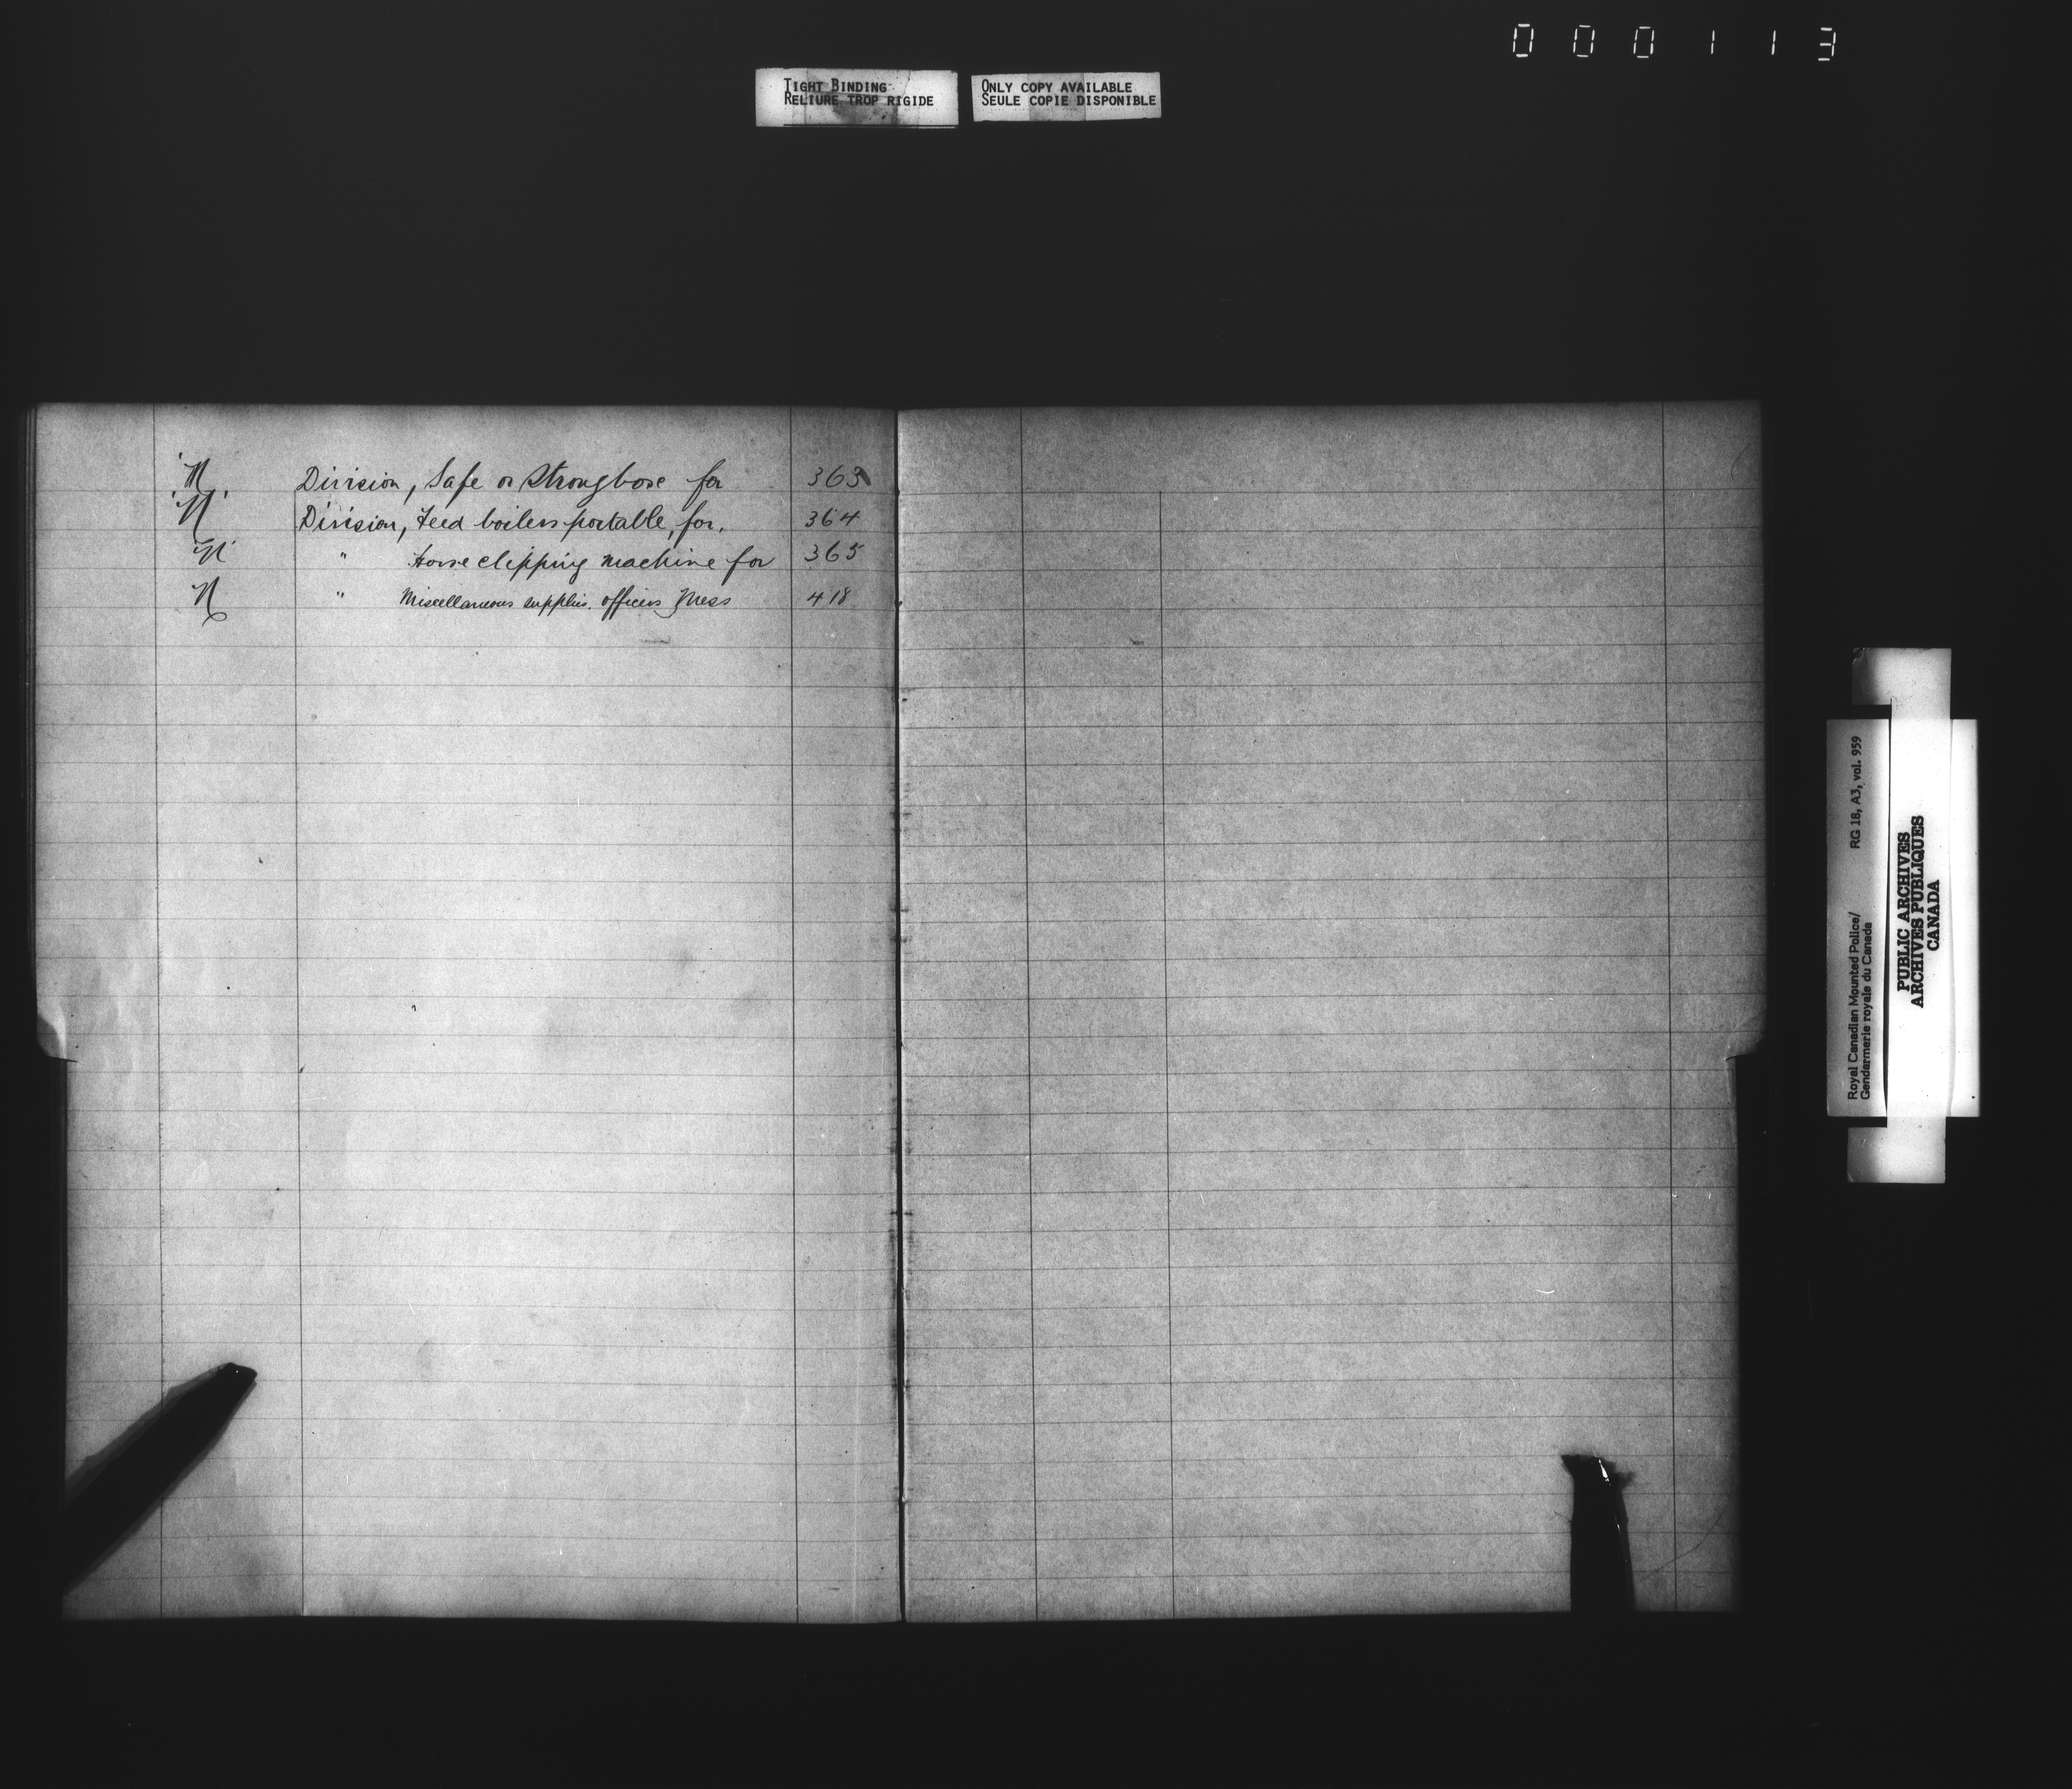 000113
TIGHT BINDING
RELIURE TROP RIGIDE
ONLY COPY AVAILABLE
SEULE COPIE DISPONIBLE
'N' Division, Safe or Strongboxe for 363
'N' Division, Feed boilers portable, for. 364
'N' " Horse clipping machine for 365
N " Miscellaneous supplies. officers Mess 418
Royal Canadian Mounted Police/ RG 18, A3, vol. 959
Gendarmerie royale du Canada
PUBLIC ARCHIVES
ARCHIVES PUBLIQUES
CANADA